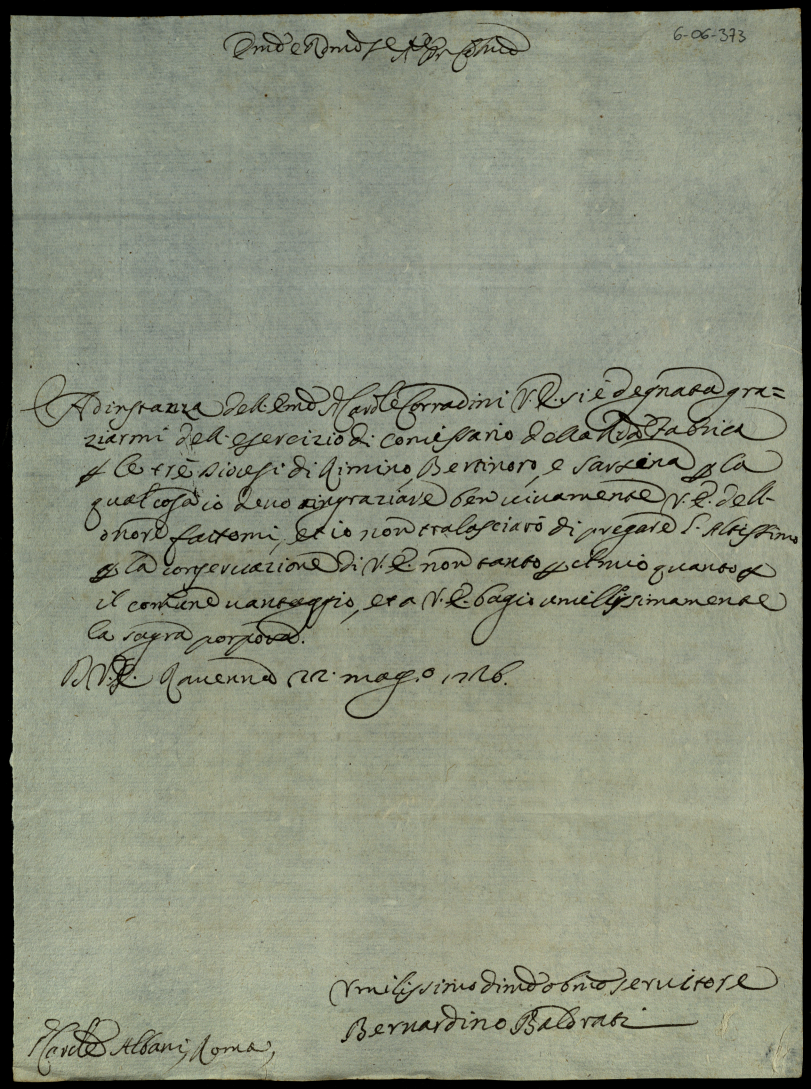 6-06-373
Em̃o e Rm̃o Sre Pre Colmo
Ad instanza dell Em̃o Sig Cardle Corradini V.E. si è degnata gra=
ziarmi dell esercizio di comissario della Rda Fabrica
p le trè Diocesi di Rimino, Bertinoro, e Sarsena p la
qual cosa io devo ringraziare ben vivamente V.E. dell
onore fattomi, et io non tralasciarò di pregare L'Altissimo
p la conservazione di V.E. non tanto p il mio quanto p
il comune vantaggio, et a V.E. bagio umilissimamente
la sagra porpora.
D V.E. Ravenna 22. mago 1726.
Vmilissimo Divmo Obmo Servitore
Bernardino Baldrati
Sig Cardle Albani, Roma,